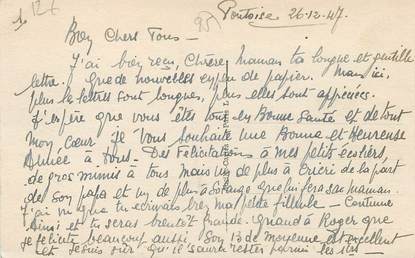 Pontoise 26-12-47.
Bien Chers Tous -
J'ai bien reçu, Chère maman ta longue et gentille
lettre. Que de nouvelles en peu de papier. Mais ici,
plus le lettres sont longues, plus elles sont appréciées.
J'espère que vous êtes tous en Bonne Santé et de tout
mon cœur je vous souhaite une Bonne et Heureuse
Année à tous. Des Félicitations à mes petits écoliers,
de gros mimis à tous mais un de plus à de la part
de son papa et un de plus à Solange que fera sa maman.
J'ai vu que tu écrivais bien ma petite fillule - Continue
ainsi et tu seras bientôt grande. Quand à Roger que
je félicite beaucoup aussi. Son 13 de moyenne est excellent
et je suis sûr qu'il saura rester parmi les